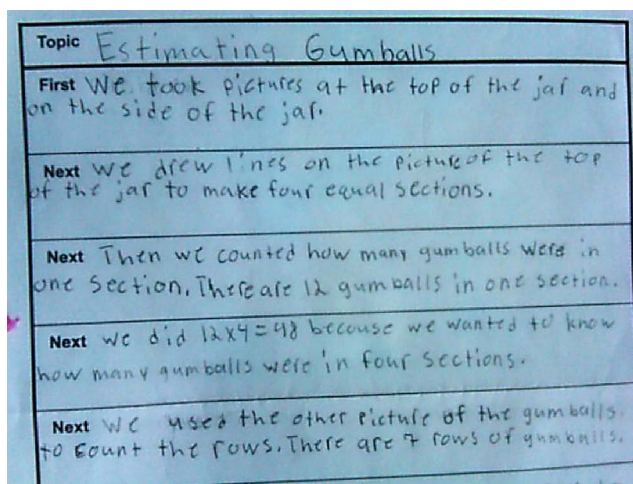 Topic Estimating Gumballs
First We took pictures at the top of the jar and
on the side of the jar.
Next We drew lines on the picture of the top
of the jar to make four equal sections.
Next Then we counted how many gumballs were in
one section. There are 12 gumballs in one section.
Next we did 12x4=48 because we wanted to know
how many gumballs were in four sections.
Next We used the other picture of the gumballs
to count the rows. There are 7 rows of gumballs.